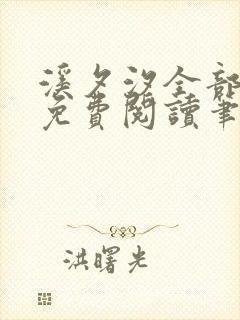 溪夕汐全部
免費閱讀筆
洪曙光